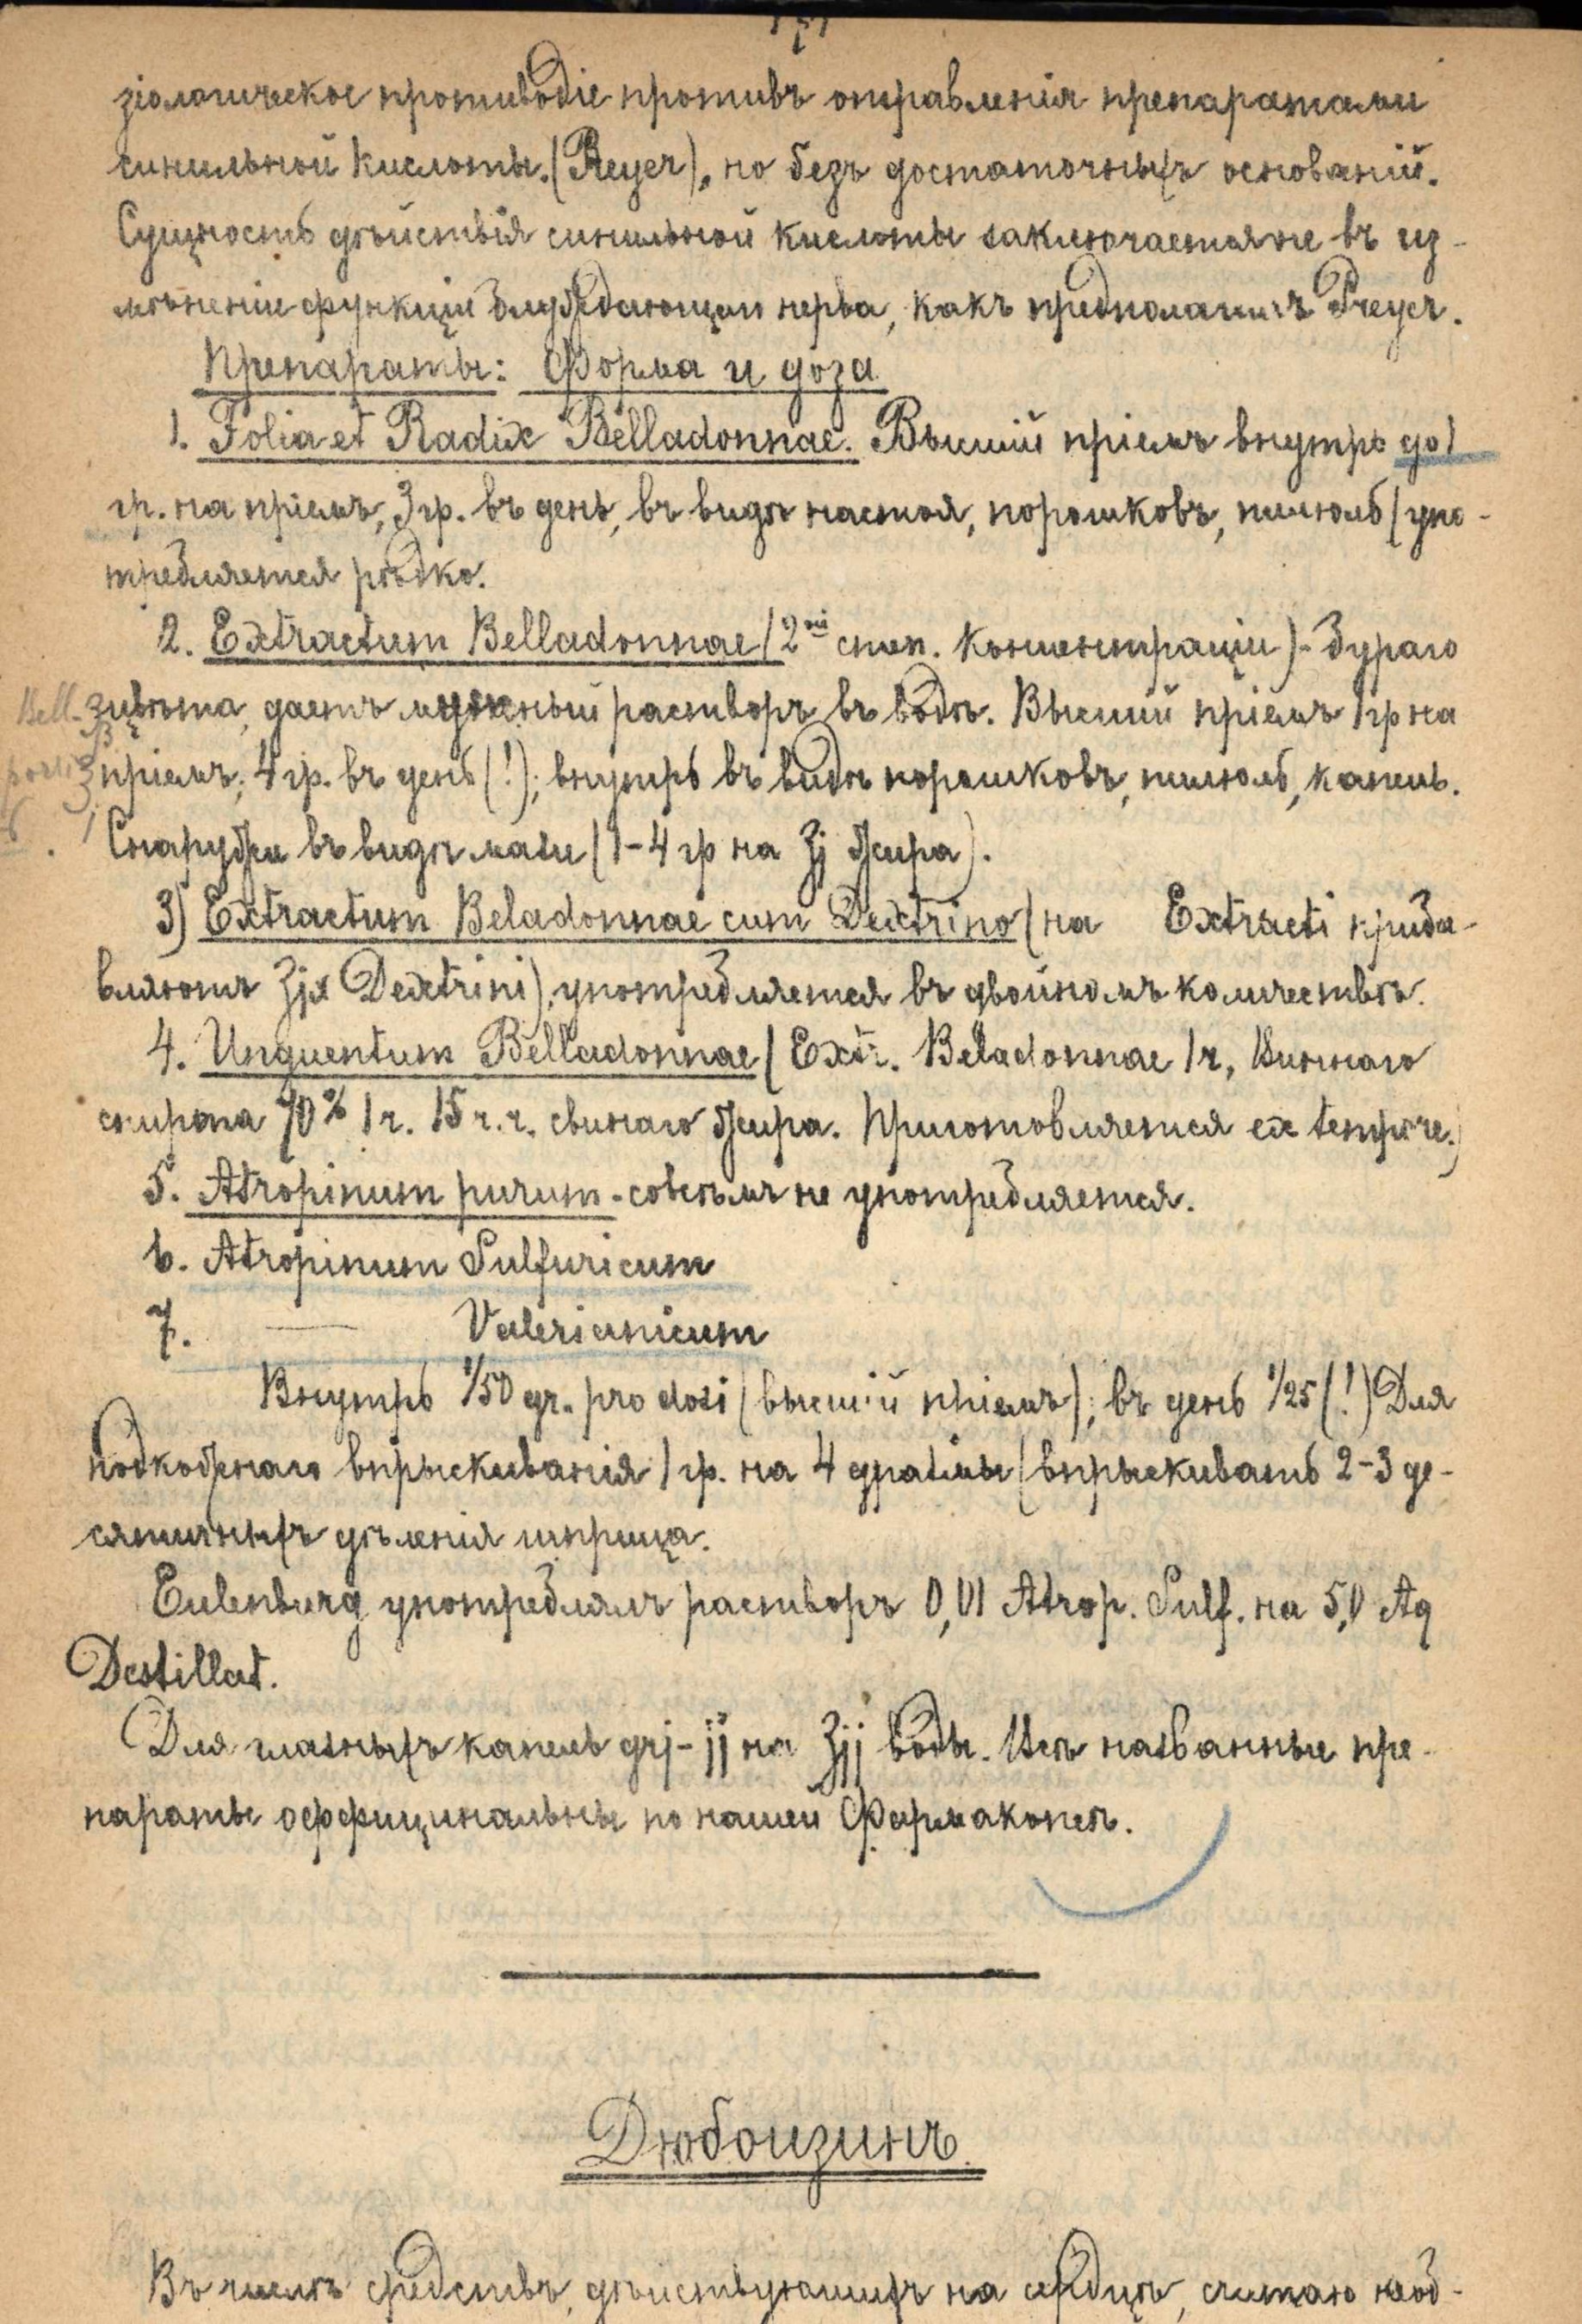 зіологическое противоядіе противъ отравленія препаратами
синильной кислоты. (Preyer), но безъ достаточныхъ основаній.
Сущность дѣйствія синильной кислоты заключается не въ из-
мѣненіи функціи блуждающаго нерва, какъ предполагалъ Preyer.
Препараты: Форма и доза
1. Folia et Radix Belladonnae. Высшій пріемъ внутрь до 1
гр. на пріемъ, 3 гр. въ день, въ видѣ настоя, порошковъ, пилюль (упо-
требляется рѣдко.
2. Extractum Belladonnae (2ой степ. концентраціи) - бураго
цвѣта, даетъ мутный растворъ въ водѣ. Высшій пріемъ 1 гр на
Bell.
пріемъ; 4 гр. въ день (!); внутрь въ видѣ порошковъ, пилюль, капель.
Снаружи въ видѣ мази (1-4 гр на ʒj жира).
3) Extractum Beladonnae cum Dextrino (на Extracti приба-
вляютъ Dextrini), употребляется въ двойномъ количествѣ.
4. Unguentum Belladonnae (Extr. Beladonnae 1 ч, Виннаго
спирта 70% 1 ч. 15 ч.ч. свинаго жира. Приготовляется ex tempore.)
5. Atropinum purum - совсѣмъ не употребляется.
6. Atropinum Sulfuricum
7. — Valerianicum
Внутрь 1/50 gr. pro dosi (высшій пріемъ); въ день 1/25 (!) Для
подкожнаго впрыскиванія 1 гр. на 4 драхмы (впрыскивать 2-3 де-
сятичныхъ дѣленія шприца.
Eulenburg употреблялъ растворъ 0,01 Atrop. Sulf. на 5,0 Aq
Destillat.
Для глазныхъ капель grj - jj на ʒjj воды. Всѣ названные пре-
параты оффицинальны по нашей Фармакопеѣ.
Дюбоизинъ.
Въ числѣ средствъ, дѣйствующихъ на сердце, считаю необ-